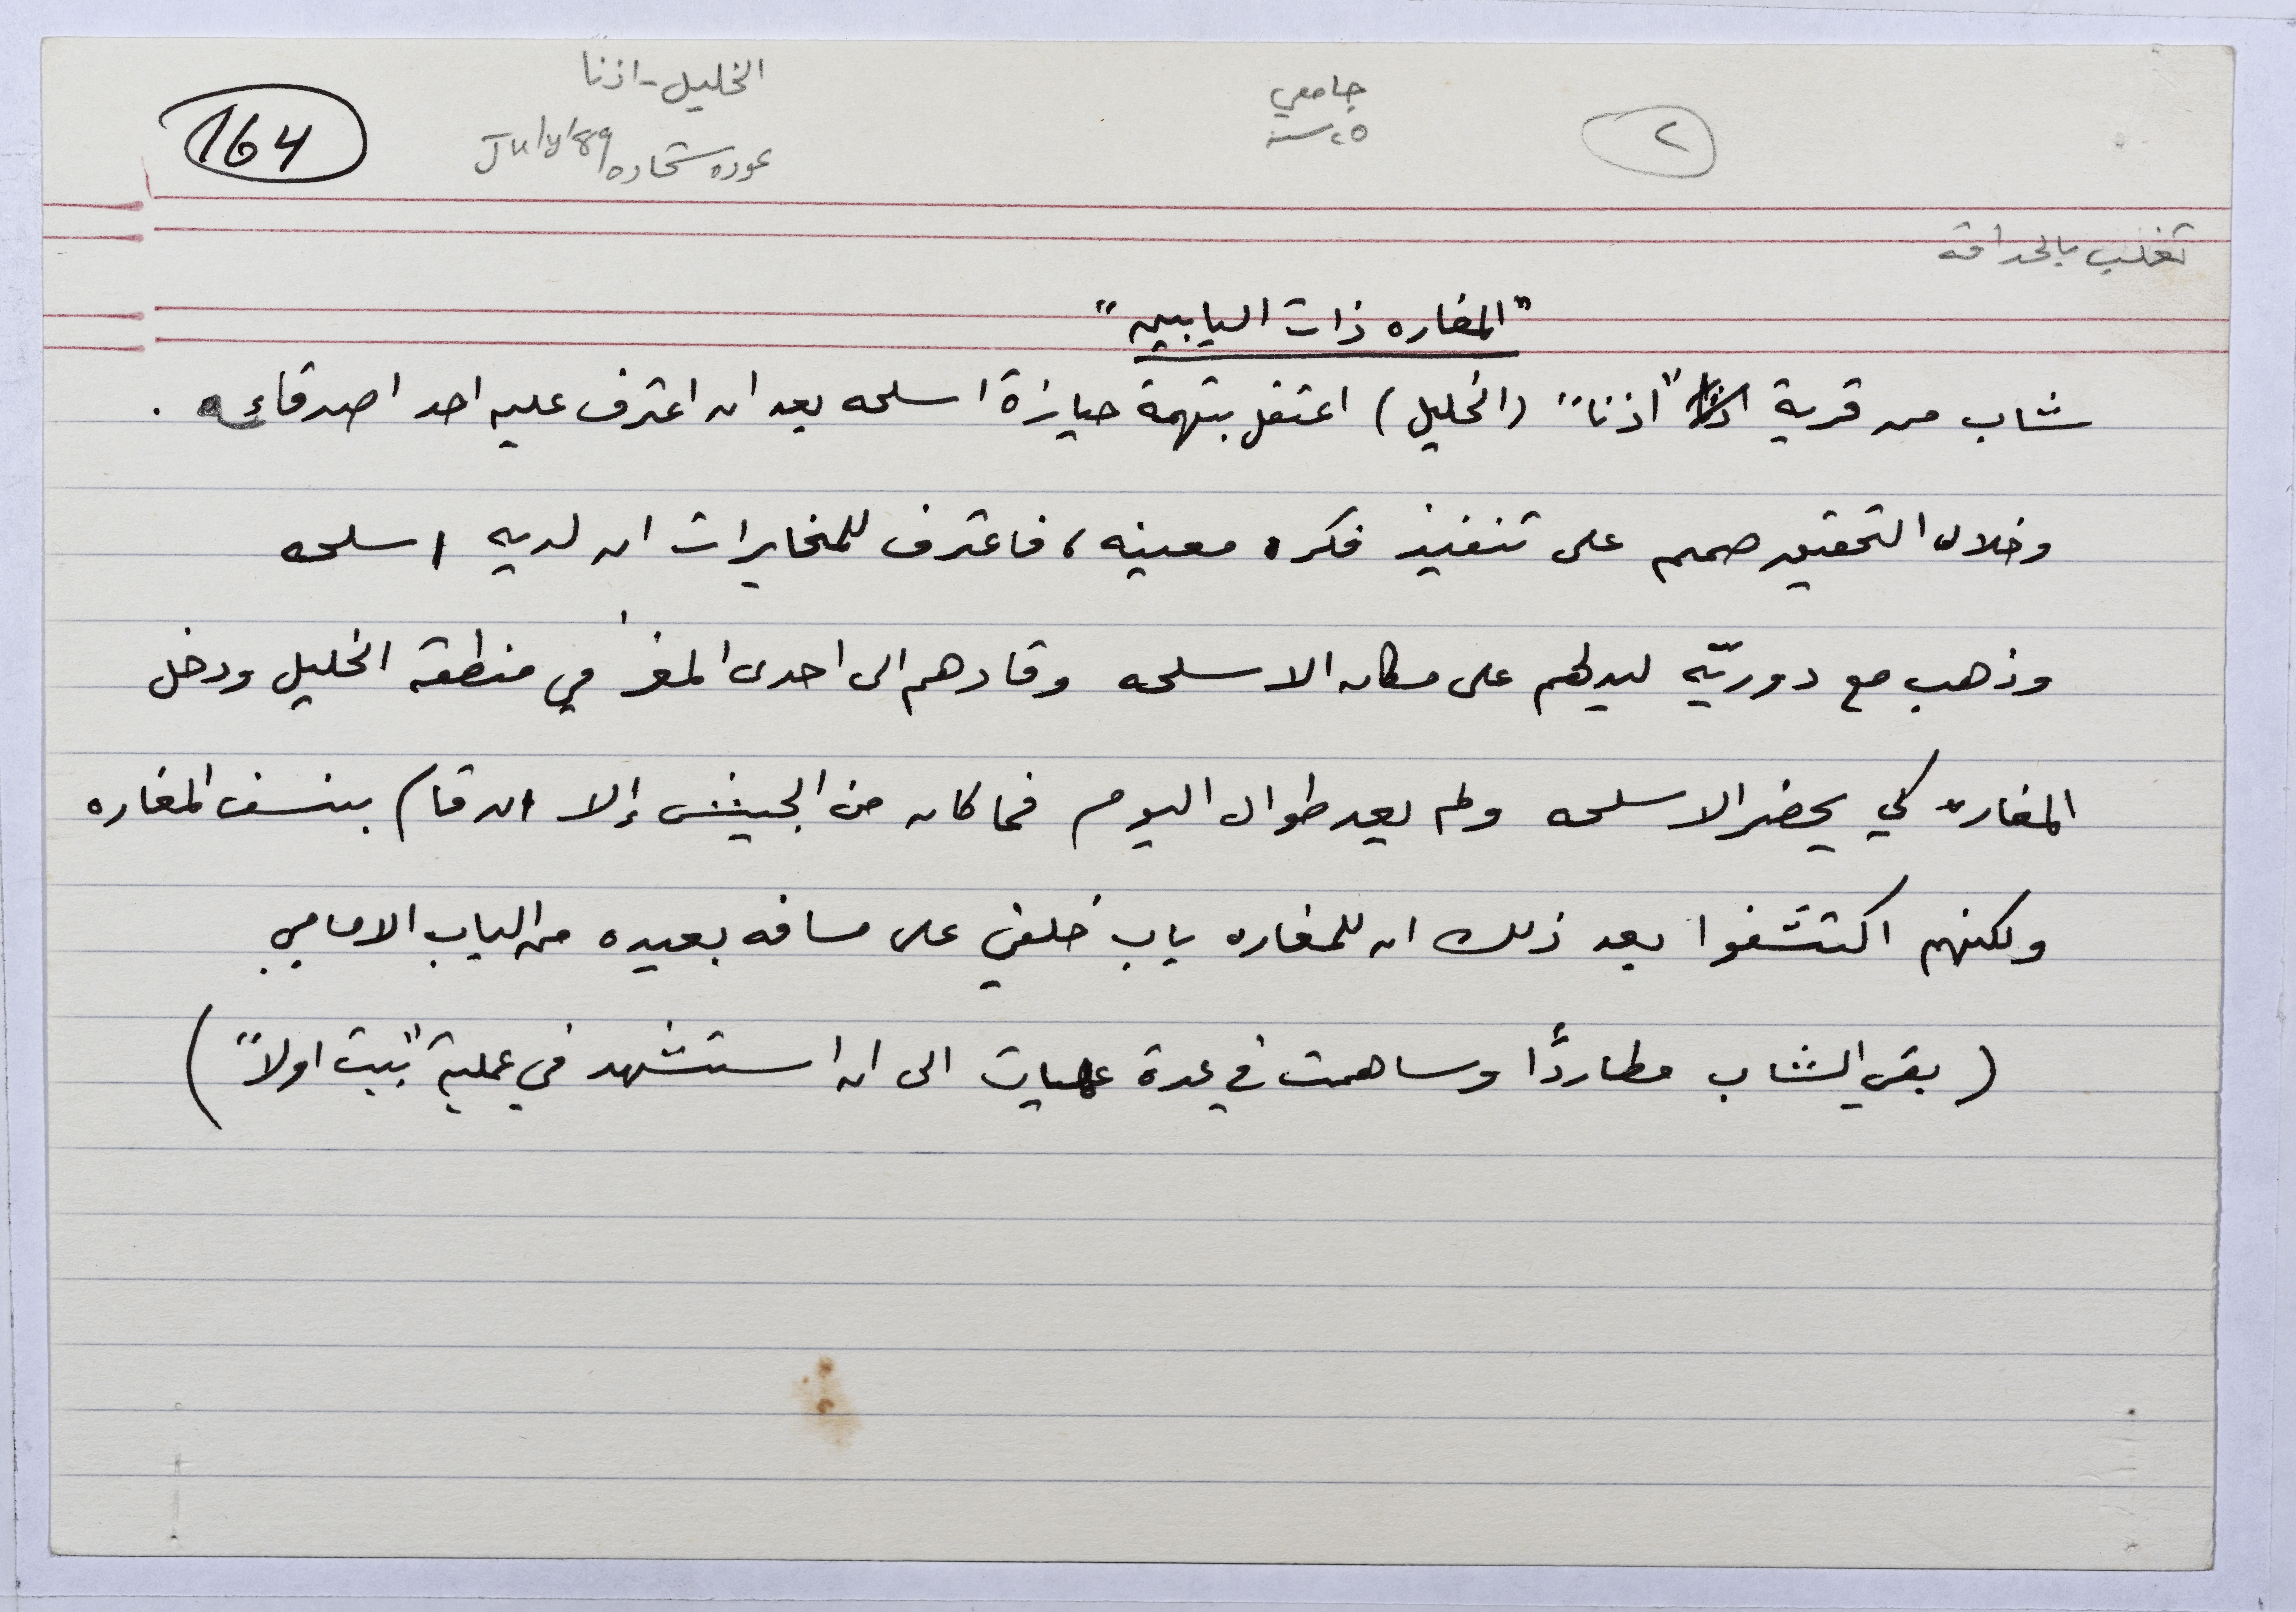 ٢
جامعي
٢٥ سنة
الخليل - اذنا
عوده شحاده July/89
164
تغلب بالحداقه
"المغاره ذات البابين"
شاب من قرية "اذنا" (الخليل) اعتقل بتهمة حيازة اسلحه بعد ان اعترف عليه احد اصدقائه .
وخلال التحقيق صمم على تنفيذ فكره معينه، فاعترف للمخابرات ان لديه اسلحه
وذهب مع دوريّه ليدلهم على مكان الاسلحه وقادهم الى احدى المغر في منطقة الخليل ودخل
المغاره كي يحضر الاسلحه ولم يعد طوال اليوم فما كان من الجيش إلا ان قام بنسف المغاره
ولكنهم اكتشفوا بعد ذلك ان للمغاره باب خلفي على مسافه بعيده من الباب الامامي
(بقي الشاب مطاردًا وساهمت في عدة عمليات الى ان استشهد في عملية "بيت اولا")